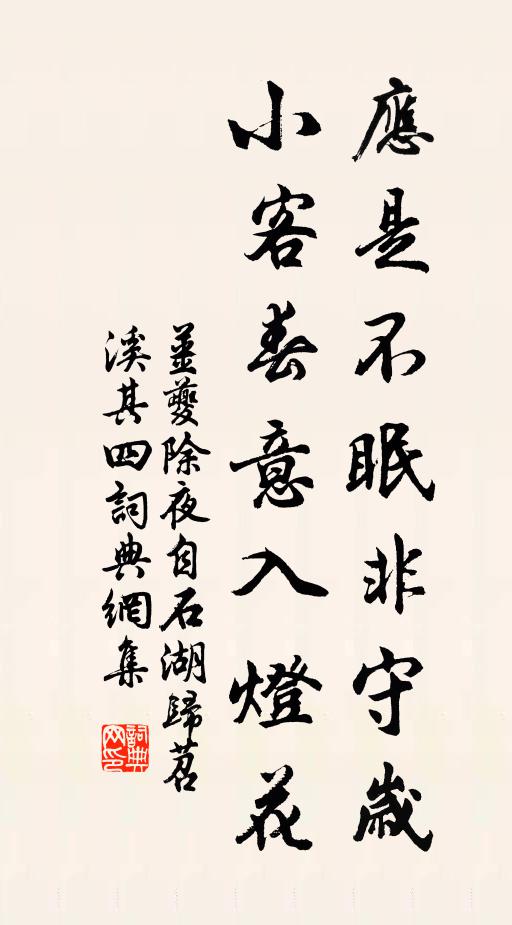 應是不眠非守歲
小窗春意入燈花
薑夔除夜自石湖歸苕
溪其四詞典網集
詞典网印